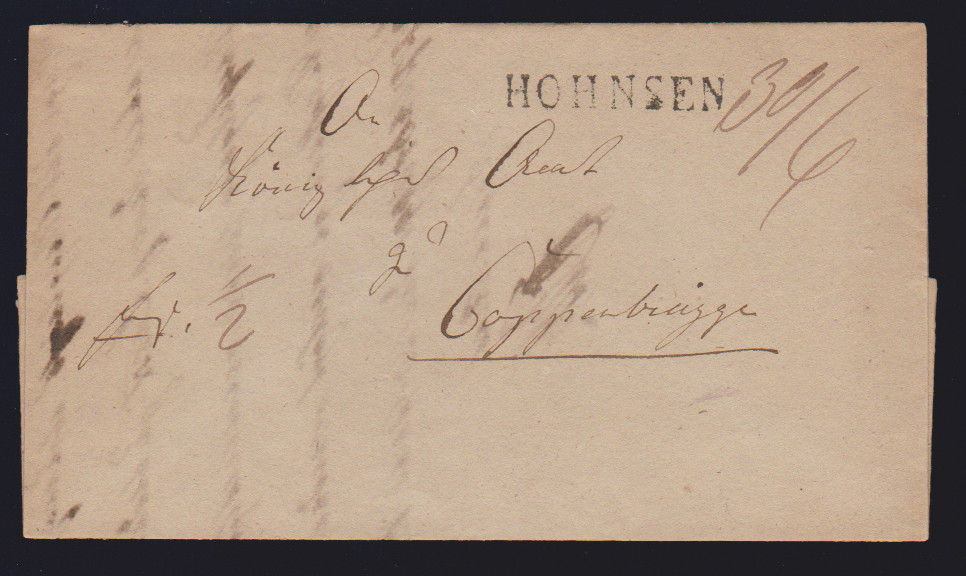 HOHNSEN 30/6
An
Königliches Amt
zu
fr. 1/2
Coppenbrügge